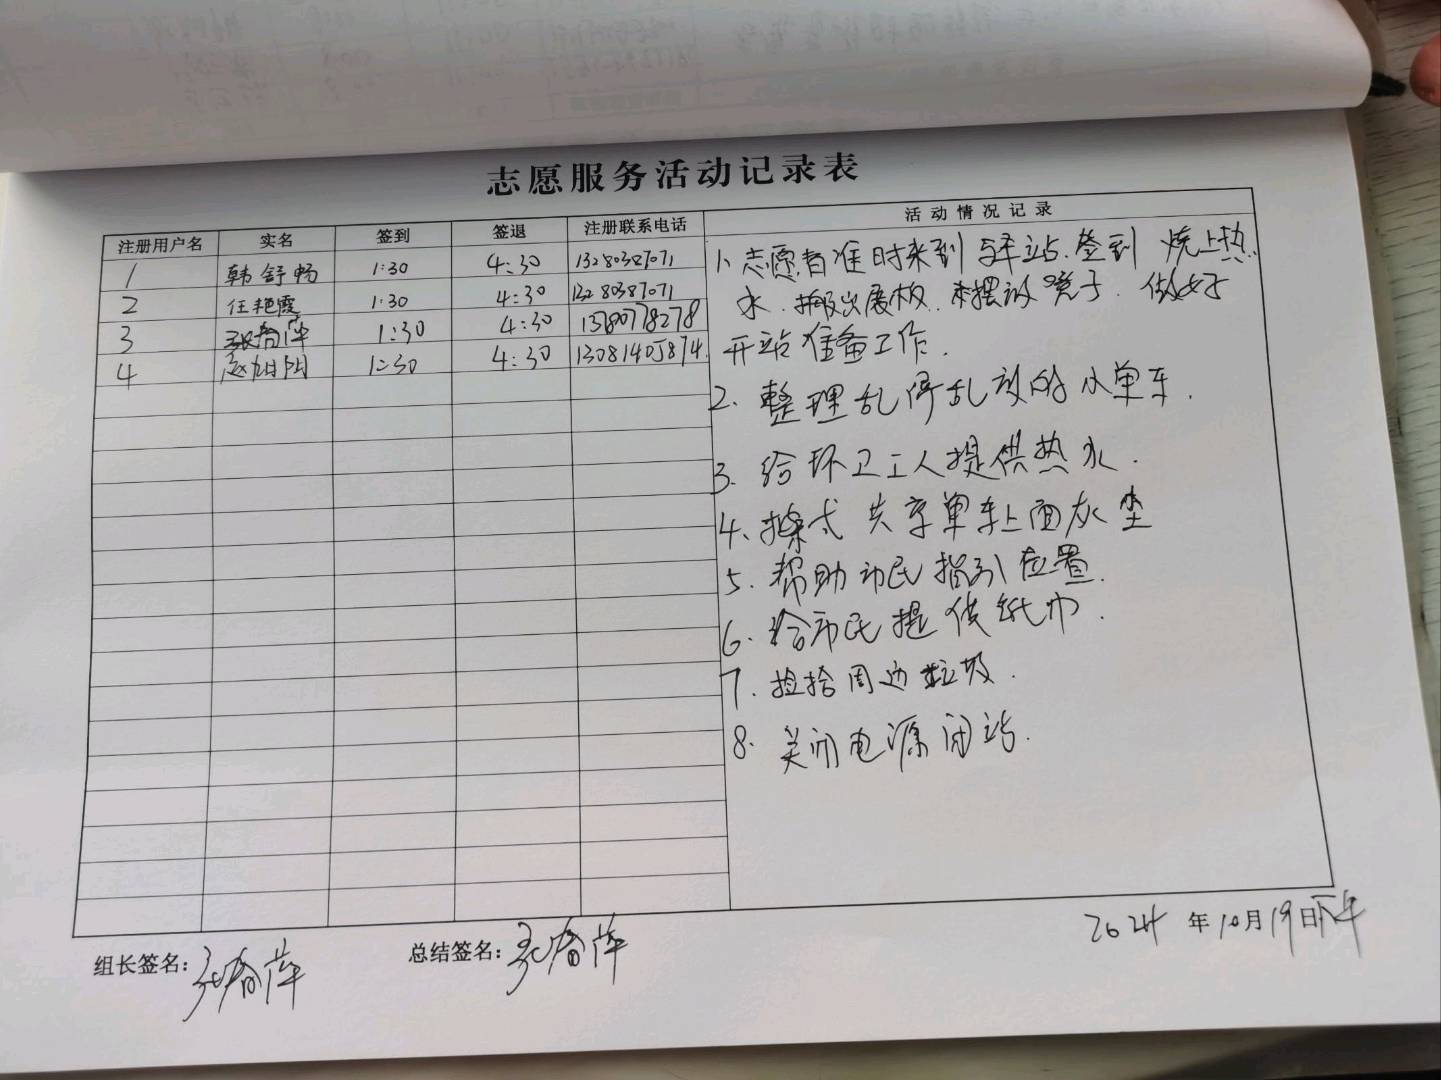 志愿服务活动记录表
注册用户名 实名 签到 签退 注册联系电话 活动情况记录
1 韩舒畅 1:30 4:30 13280387071
2 任艳霞 1:30 4:30 13280387071
3 张春萍 1:30 4:30
4 1:30 4:30
1、志愿者准时来到 站.签到 烧上热
水.搬出展板. 摆放凳子.做好
开站准备工作.
2.整理乱停乱放的小单车.
3.给环卫工人提供热水.
4.擦式共享单车上面灰尘
5.帮助市民指引位置.
6.给市民提供纸巾.
7.捡拾周边垃圾.
8.关闭电源闭站.
组长签名:张春萍 总结签名:张春萍 2024年10月19日下午